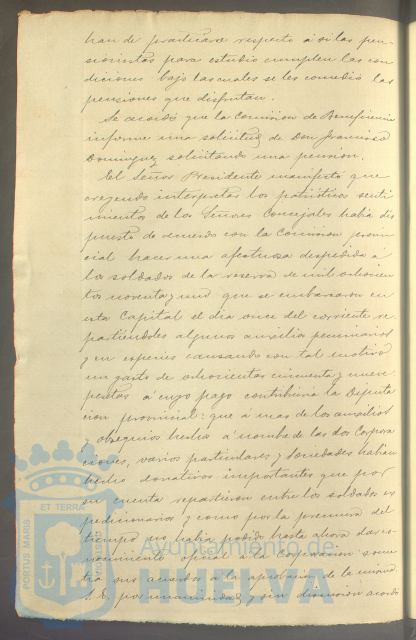 han de practicarse respecto á si los pen-
sionistas para estudio cumplen las con
diciones bajo las cuales se les concedió las
pensiones que disfrutan.
Se acordó que la Comision de Beneficencia
informe una solicitud de Don Francisco
Dominguez solicitando una pension.
El Señor Presidente manifestó que
creyendo interpretar los patrióticos senti
mientos de los Señores Concejales había dis
puesto de acuerdo con la Comision provin
cial hacer una afectuosa despedida a
los soldados de la reserva de mil ochocien
tos noventa y uno que se embarcaron en
esta Capital el dia once del corriente re
partiendoles algunos auxilios pecuniarios
y en especies causando con tal motivo
un gasto de ochocientas cincuenta y nueve
pesetas a cuyo pago contribuia la Diputa
cion provincial: que á mas de los auxilios
y obsequios hechos á nombre de las dos Corpora
ciones, varios particulares y Sociedades habian
hecho donativos importantes que por
su cuenta repartieron entre los soldados ex
pedicionarios y como por la premura del
tiempo no habia podido hasta ahora dar co-
nocimiento oficial a la Corporacion some
tia sus acuerdos a la aprobacion de la misma
S.E. por unanimidad y sin discusion acordó
PORTUS MARIS ET TERRAE
Ayuntamiento de
HUELVA